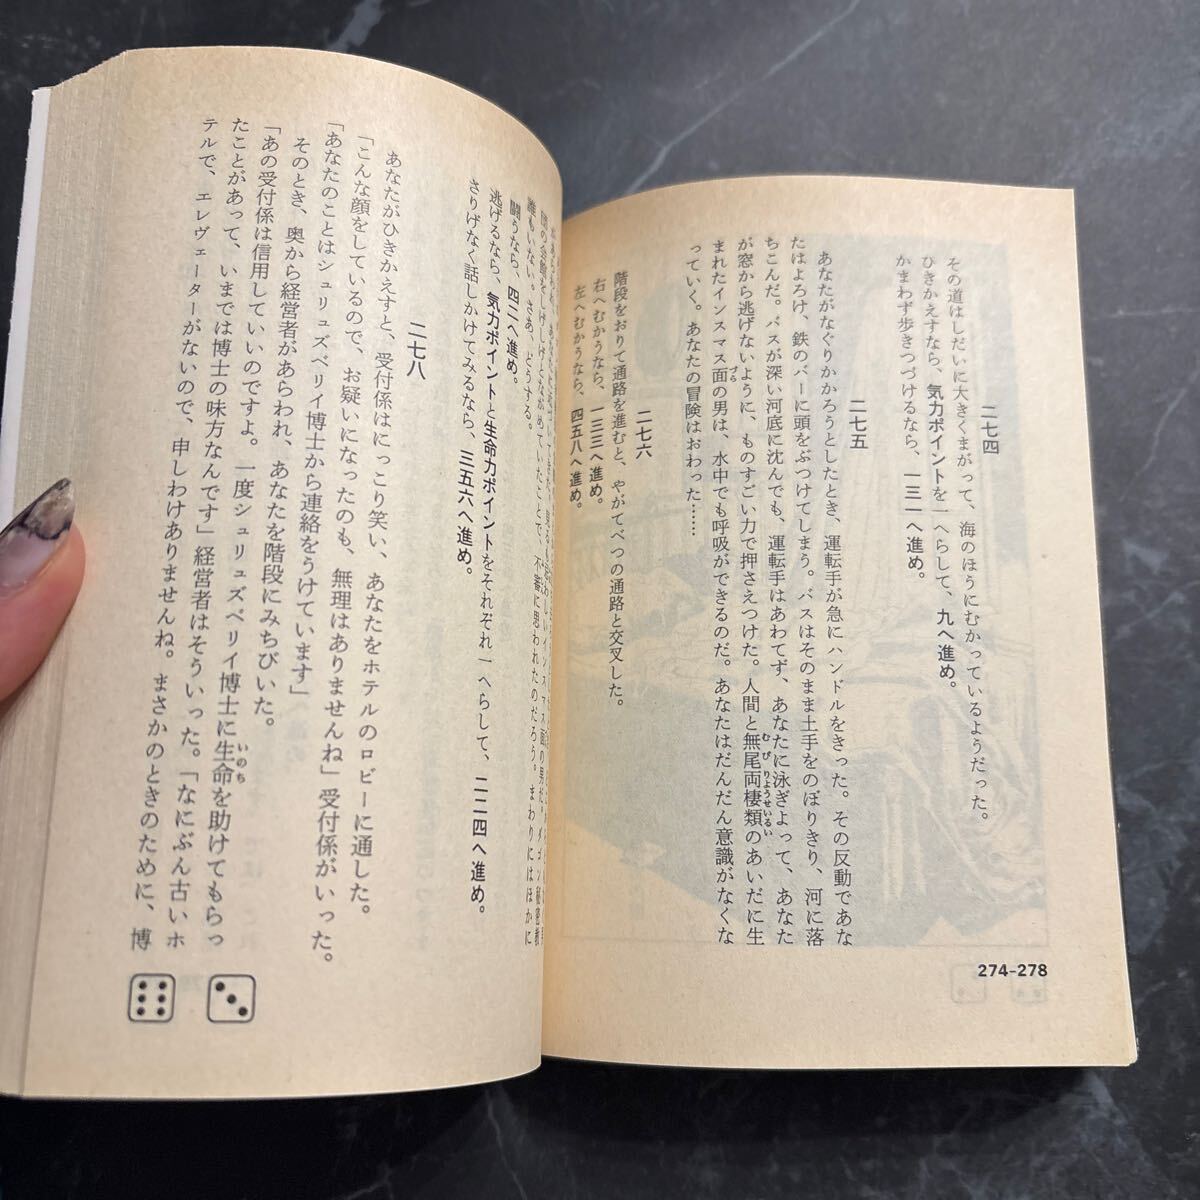 二七四
その道はしだいに大きくまがって、海のほうにむかっているようだった。
ひきかえすなら、気力ポイントを一へらして、九へ進め。
かまわず歩きつづけるなら、一三一へ進め。
二七五
あなたがなぐりかかろうとしたとき、運転手が急にハンドルをきった。その反動であな
たはよろけ、鉄のバーに頭をぶつけてしまう。バスはそのまま土手をのぼりきり、河に落
ちこんだ。バスが深い河底に沈んでも、運転手はあわてず、あなたに泳ぎよって、あなた
が窓から逃げないように、ものすごい力で押さえつけた。人間と無尾両棲類のあいだに生
むびりょうせいるい
まれたインスマス面の男は、水中でも呼吸ができるのだ。あなたはだんだん意識がなくな
づら
っていく。あなたの冒険はおわった……
二七六
階段をおりて通路を進むと、やがてべつの通路と交叉した。
右へむかうなら、一三三へ進め。
左へむかうなら、四五八へ進め。
274-278
団の会館をしげしげとながめていたことで、不審に思われたのだろう。まわりにはほかに
誰もいない。さあ、どうする。
闘うなら、四二へ進め。
逃げるなら、気力ポイントと生命力ポイントをそれぞれ一へらして、二二四へ進め。
さりげなく話しかけてみるなら、三五六へ進め。
二七八
あなたがひきかえすと、受付係はにっこり笑い、あなたをホテルのロビーに通した。
「こんな顔をしているので、お疑いになったのも、無理はありませんね」受付係がいった。
「あなたのことはシュリズベリイ博士から連絡をうけています」
そのとき、奥から経営者があらわれ、あなたを階段にみちびいた。
「あの受付係は信用していいのですよ。一度シュリズベリイ博士に生命を助けてもらっ
いのち
たことがあって、いまでは博士の味方なんです」経営者はそういった。「なにぶん古いホ
テルで、エレヴェーターがないので、申しわけありませんね。まさかのときのために、博